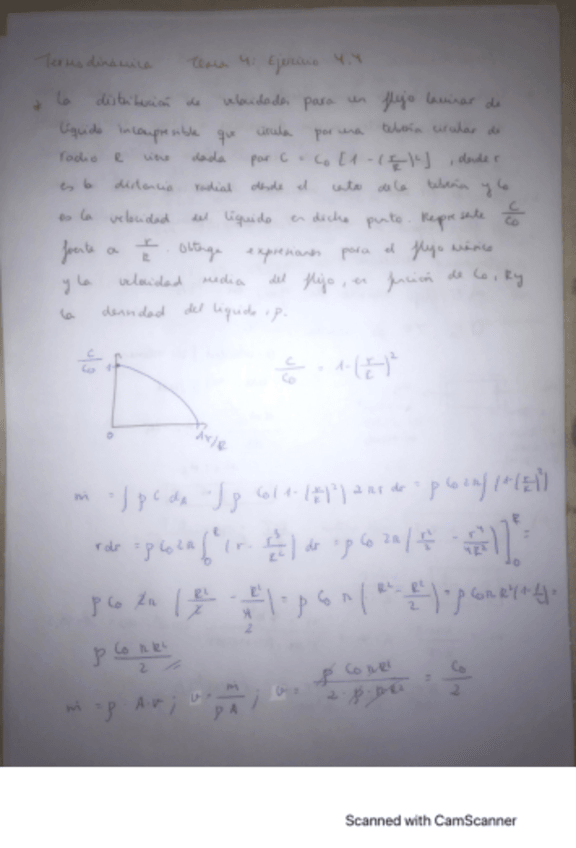 Termodinámica Tema 4: Ejercicio 4.4
La distribución de velocidades para un flujo laminar de
líquido incompresible que circula por una tubería circular de
radio R viene dada por C = C₀ [1 - (r/R)²], donde r
es la distancia radial desde el centro de la tubería y C₀
es la velocidad del líquido en dicho punto. Represente C/C₀
frente a r/R. Obtenga expresiones para el flujo másico
y la velocidad media del flujo, en función de C₀, R y
la densidad del líquido, ρ.
C/C₀ 1
C/C₀ = 1 - (r/R)²
0 1 r/R
ṁ = ∫ ρ C dA = ∫ ρ C₀ (1 - (r/R)²) 2πr dr = ρ C₀ 2π ∫ (1 - (r/R)²)
r dr = ρ C₀ 2π ∫₀ᴿ (r - r³/R²) dr = ρ C₀ 2π (r²/2 - r⁴/4R²)]₀ᴿ =
ρ C₀ 2π (R²/2 - R²/4) = ρ C₀ π (R² - R²/2) =
ρ C₀πR²/2
ṁ = ρ · A · v ; v = m/ρA ; v = ρ C₀πR²/2·ρ·πR² = C₀/2
Scanned with CamScanner